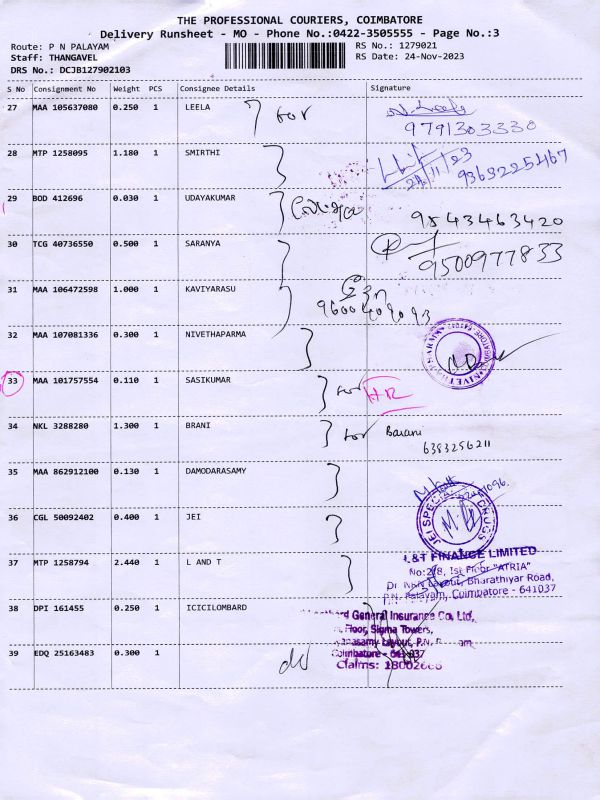 THE PROFESSIONAL COURIERS, COIMBATORE
Delivery Runsheet - MO - Phone No.:0422-3505555 - Page No.:3
Route: P N PALAYAM RS No.: 1279021
Staff: THANGAVEL RS Date: 24-Nov-2023
DRS No.: DCJB127902103
S No Consignment No Weight PCS Consignee Details Signature
27 MAA 105637080 0.250 1 LEELA for
9791303330
28 MTP 1258095 1.180 1 SMIRTHI 24/11/23 9363225467
29 BOD 412696 0.030 1 UDAYAKUMAR 9843463420
30 TCG 40736550 0.500 1 SARANYA 9500977833
31 MAA 106472598 1.000 1 KAVIYARASU
9600409093
32 MAA 107081336 0.300 1 NIVETHAPARMA
33 MAA 101757554 0.110 1 SASIKUMAR for HR
34 NKL 3288280 1.300 1 BRANI for Barani
6353256211
35 MAA 862912100 0.130 1 DAMODARASAMY
36 CGL 50092402 0.400 1 JEI JEI SPECIAL DRUGS
37 MTP 1258794 2.440 1 L AND T L&T FINANCE LIMITED
No:2/8, 1st Floor "ATRIA"
Layout, Bharathiyar Road,
P.N. Palayam, Coimbatore - 641037
38 DPI 161455 0.250 1 ICICILOMBARD General Insurance Co, Ltd,
Floor, Sigma Towers,
Layout, P.N.
39 EDQ 25163483 0.300 1 Coimbatore - 641 037
Claims: